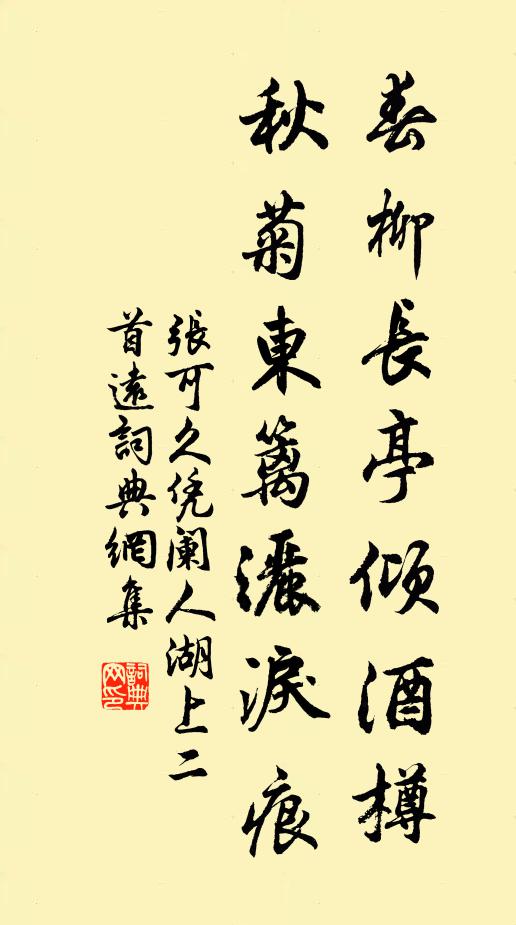 春柳長亭傾酒樽
秋菊東籬灑淚痕
張可久凭闌人湖上二
首遠詞典網集
詞典
网印